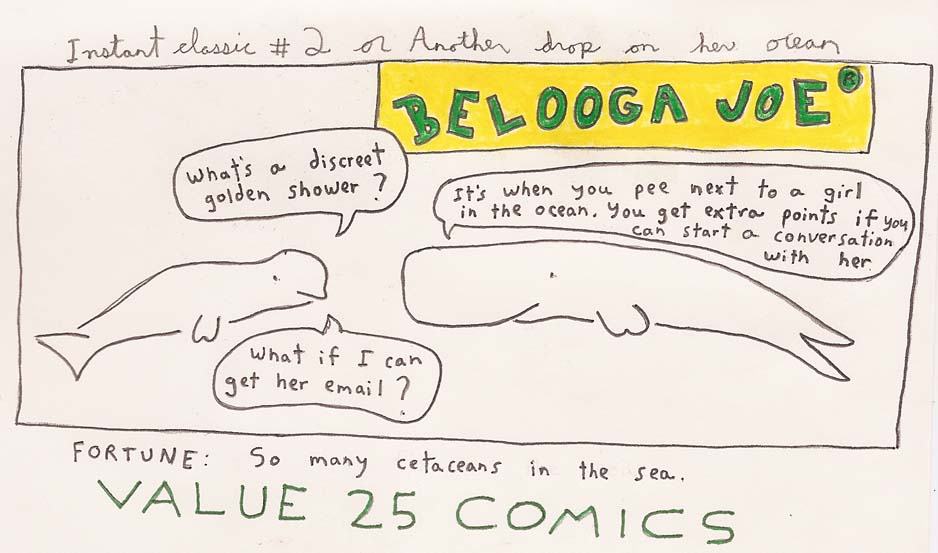 Instant classic # 2 or Another drop on her ocean
BELOOGA JOE ®
What's a discreet
golden shower?
It's when you pee next to a girl
in the ocean. You get extra points if you
can start a conversation
with her.
What if I can
get her email?
FORTUNE: So many cetaceans in the sea.
VALUE 25 COMICS